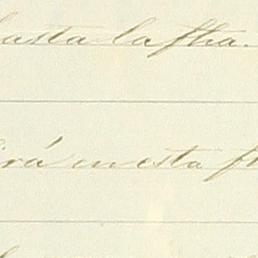 hasta la fha.
irá en esta fh